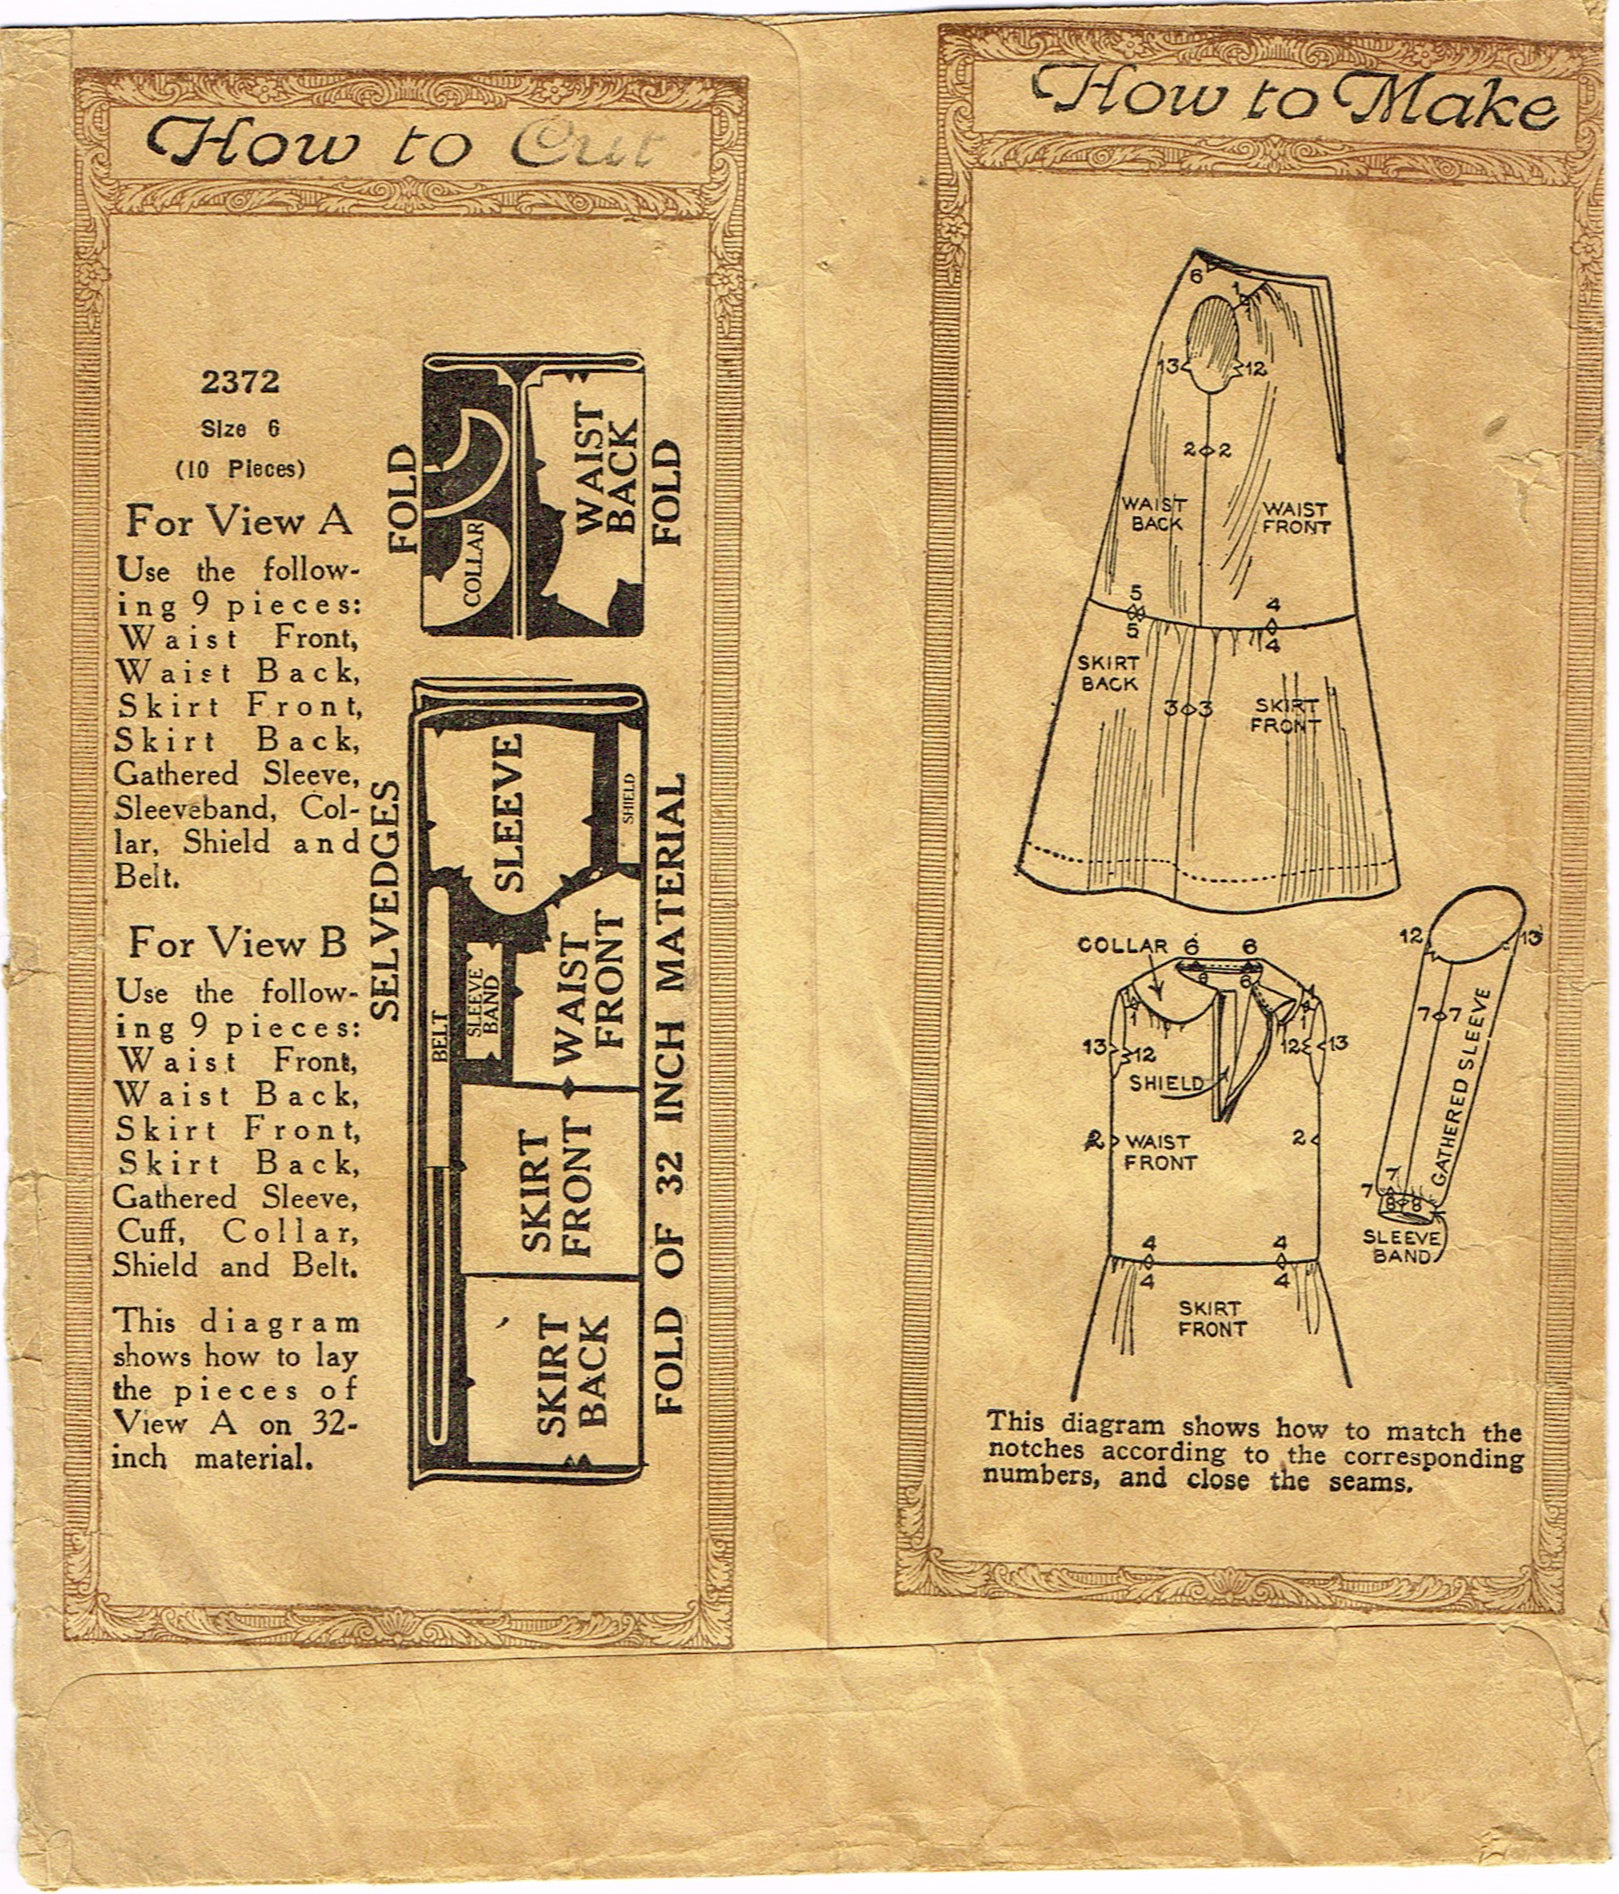 How to Cut
2372
Size 6
(10 Pieces)
For View A
Use the follow-
ing 9 pieces:
Waist Front,
Waist Back,
Skirt Front,
Skirt Back,
Gathered Sleeve,
Sleeveband, Col-
lar, Shield and
Belt.
For View B
Use the follow-
ing 9 pieces:
Waist Front,
Waist Back,
Skirt Front,
Skirt Back,
Gathered Sleeve,
Cuff, Collar,
Shield and Belt.
This diagram
shows how to lay
the pieces of
View A on 32-
inch material.
FOLD
COLLAR
WAIST
BACK
FOLD
SELVEDGES
SLEEVE
SHIELD
BELT
SLEEVE
BAND
WAIST
FRONT
SKIRT
FRONT
SKIRT
BACK
FOLD OF 32 INCH MATERIAL
How to Make
6
1
1
13 12
2 2
WAIST
BACK
WAIST
FRONT
5 4
5 4
SKIRT
BACK
3 3
SKIRT
FRONT
COLLAR 6 6
6 6
1 1
1 1
13 12 12 13
SHIELD
2 WAIST
FRONT
2
4 4
4 4
SKIRT
FRONT
12 13
7 7
GATHERED SLEEVE
7 7
8 8
SLEEVE
BAND
This diagram shows how to match the
notches according to the corresponding
numbers, and close the seams.